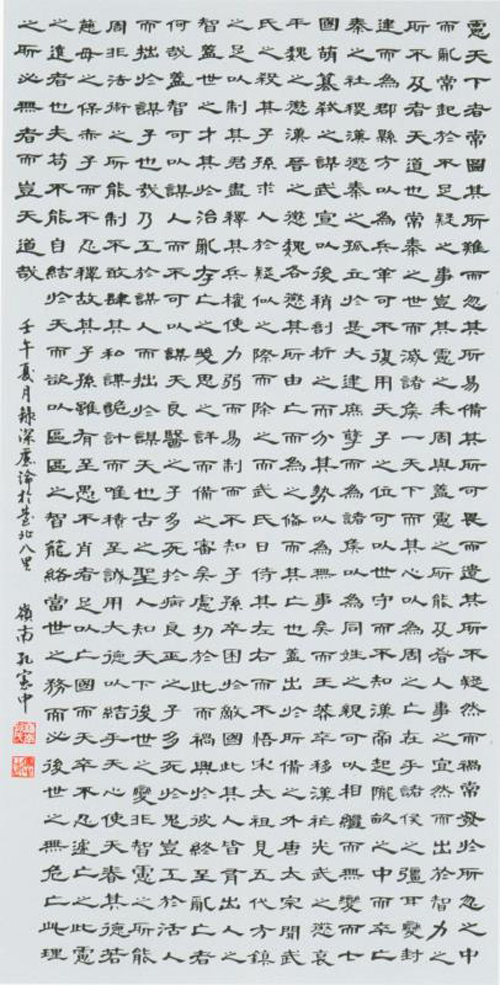 慮天下者常圖其所難而忽其所易備其所可畏而遺其所不疑然而禍常發於所忽之中
而亂常起於不足疑之事豈其慮之未周與蓋慮之所能及者人事之宜然而出於智力之
所不及者天道也當秦之世而滅諸侯一天下而其心以為周之亡在乎諸侯之彊耳變封
建而為郡縣方以為兵革可不復用天子之位可以世守而不知漢帝起隴畝之中而卒亡
秦之社稷漢懲秦之孤立於是大建庶孽而為諸侯以為同姓之親可以相繼而無變而七
國萌篡弒之謀武宣以後稍剖析之而分其勢以為無事矣而王莽卒移漢祚光武之懲哀
平魏之懲漢晉之懲魏各懲其所由亡而為之備而其亡也蓋出於所備之外唐太宗聞武
氏之殺其子孫求人於疑似之際而除之而武氏日侍其左右而不悟宋太祖見五代方鎮
之足以制其君盡釋其兵權使力弱而易制而不知子孫卒困於敵國此其人皆有出人之
智蓋世之才其於治亂存亡之幾思之詳而備之審矣慮切於此而禍興於彼終至亂亡者
何哉蓋智可以謀人而不可以謀天良醫之子多死於病良巫之子多死於鬼豈工於活人
而拙於謀子也哉乃工於謀人而拙於謀天也古之聖人知天下後世之變非智慮之所能
周非法術之所能制不敢肆其私謀詭計而唯積至誠用大德以結乎天心使天眷其德若
慈母之保赤子而不忍釋故其子孫雖有至愚不肖者足以亡國而天卒不忍遽亡之此慮
之遠者也夫苟不能自結於天而欲以區區之智籠絡當世之務而必後世之無危亡此理
之所必無者而豈天道哉
壬午夏月錄深慮論於臺北八里 嶺南孔憲中